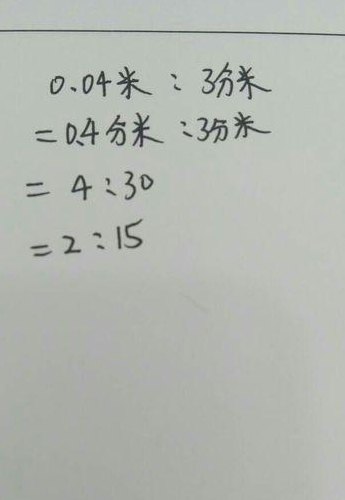 0.04米：3分米
=0.4分米：3分米
=4：30
=2：15